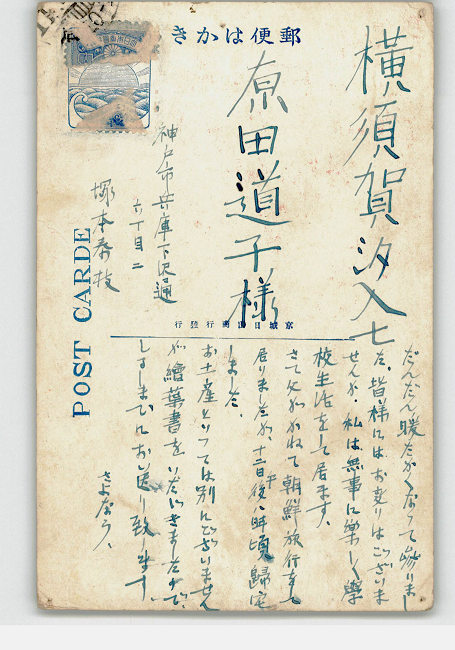 郵便はかき
横須賀汐入七
原田道子様
神戸市兵庫下沢通
六丁目二
塚本泰枝
POST CARDE
京城日之出商行発行
だんだん暖たかくなって参りまし
た。皆様にはお変りはございま
せんか。私は無事に楽しく學
校生活をして居ます。
さて父がかねて朝鮮旅行をして
居りましたが、十二日午後八時頃歸宅
しました。
お土産といっては別にございません
が繪葉書をいただきましたので、
しるしまでにお送り致します
さよなら、